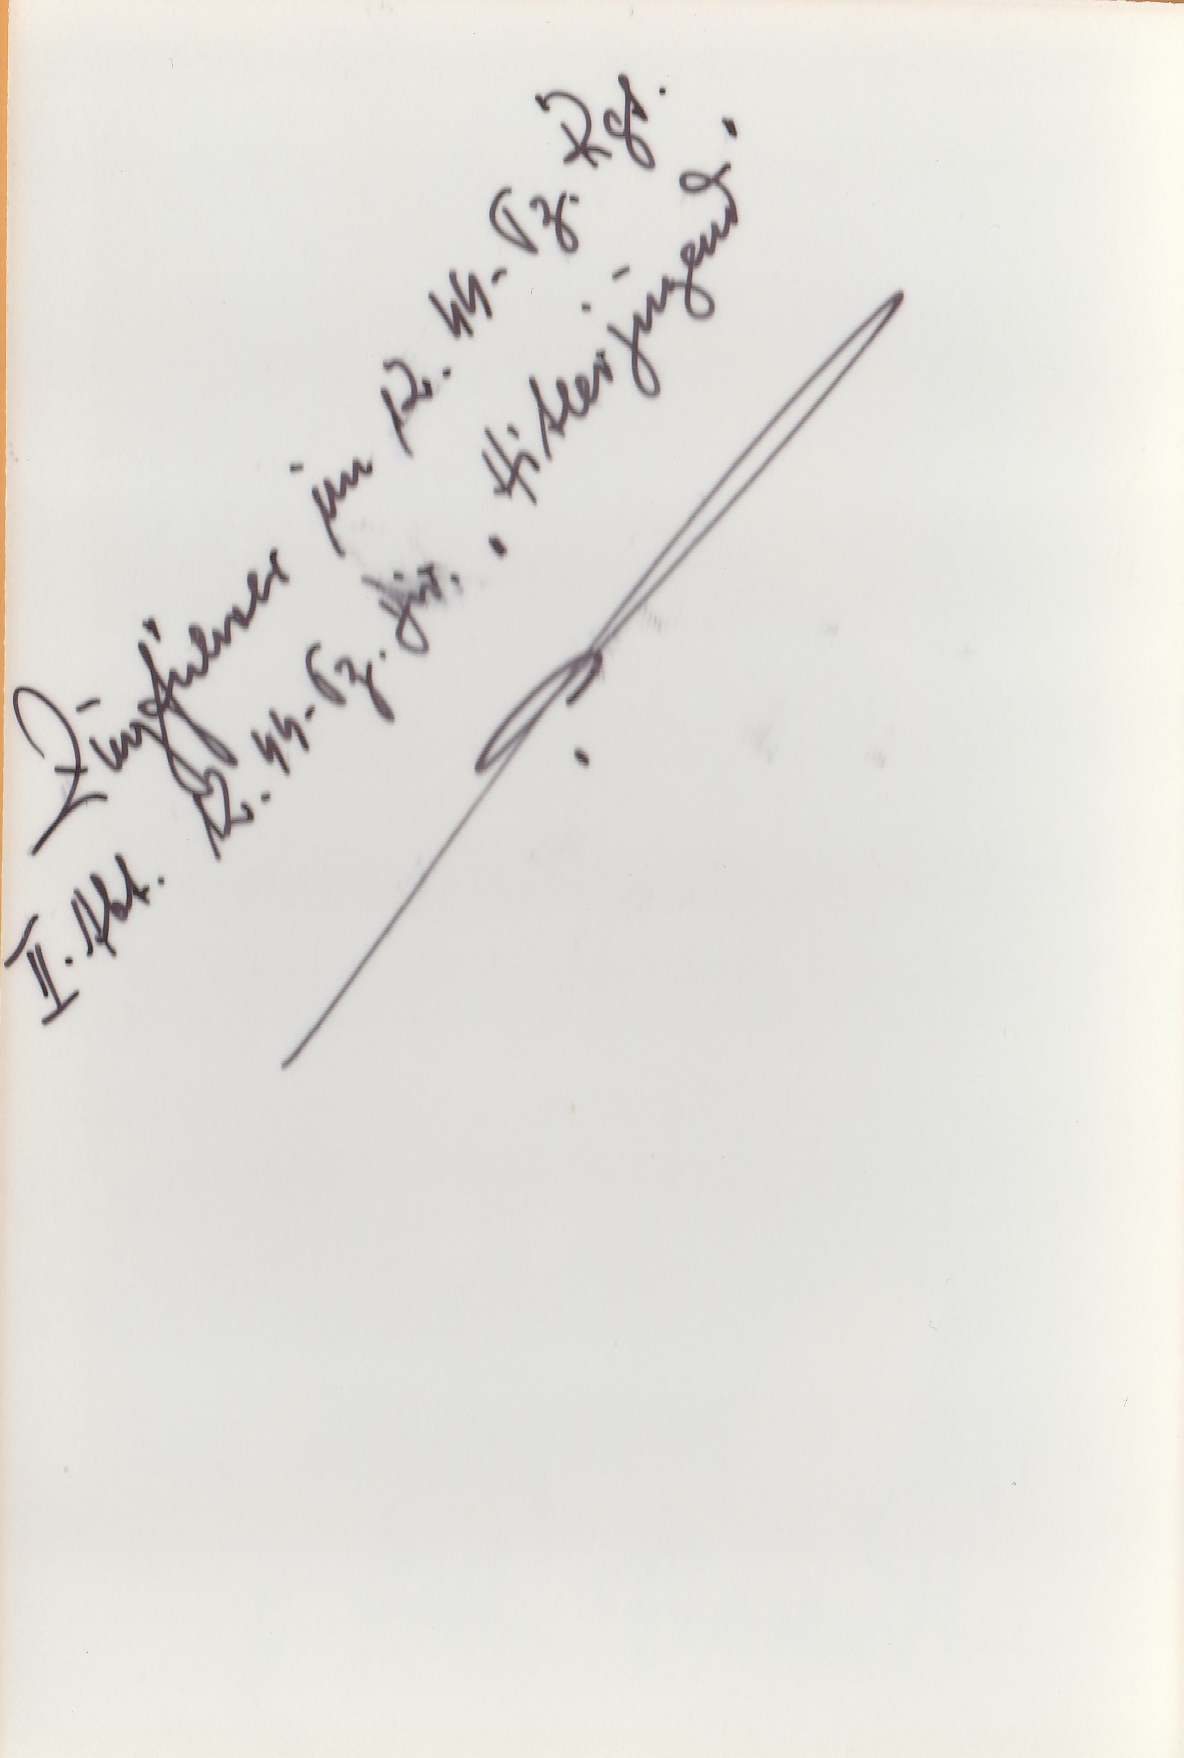 Zugführer im 12. SS-Pz. Rgt.
II. Abt. 12. SS-Pz. Div. "Hitlerjugend"